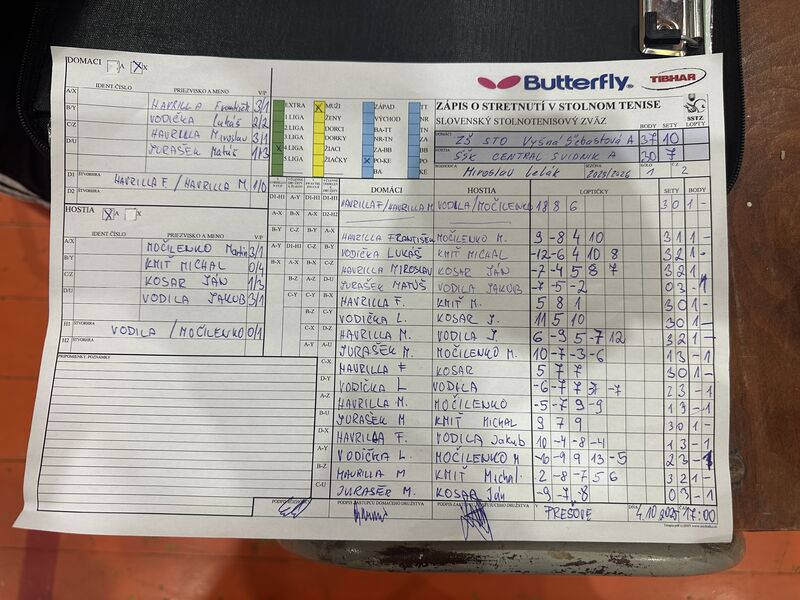 DOMACI A X
Butterfly TIBHAR
ZÁPIS O STRETNUTÍ V STOLNOM TENISE
SLOVENSKÝ STOLNOTENISOVÝ ZVÄZ
SSTZ
IDENT ČÍSLO PRIEZVISKO A MENO V/P
A/X HAVRILLA František 3/1
B/Y VODIČKA Lukáš 2/2
C/Z HAVRILLA Miroslav 3/1
D/U JURAŠEK Matúš 1/3
D1 ŠTVORHRA HAVRILLA F. / HAVRILLA M. 1/0
D2
EXTRA MUŽI ZÁPAD TT
1 LIGA ŽENY VÝCHOD NR
2 LIGA DORCI BA-TT TN
3 LIGA DORKY NR-TN ZA
4 LIGA ŽIACI ZA-BB BB
5 LIGA ŽIAČKY PO-KE PO
BA KE
BODY SETY LOPTY
DOMÁCI ZŠ STO Vyšná Šebastová A 37 10
HOSTIA ŠŠK CENTRAL SVIDNIK A 30 7
ROZHODCA Miroslav Lelák SEZÓNA 2025/2026 KOLO 1 2
HOSTIA A X
IDENT ČÍSLO PRIEZVISKO A MENO V/P
A/X MOČILENKO Martin 3/1
B/Y KMIŤ MICHAL 0/4
C/Z KOSAR JÁN 1/3
D/U VODILA JAKUB 3/1
H1 ŠTVORHRA VODILA / MOČILENKO 0/1
H2 ŠTVORHRA
PRIPOMIENKY, POZNÁMKY
DOMÁCI HOSTIA LOPTIČKY SETY BODY
HAVRILLA F/HAVRILLA M VODILA/MOČILENKO 18 8 6 3 0 1 -
HAVRILLA FRANTIŠEK MOČILENKO M. 9 -8 4 10 3 1 1 -
VODIČKA LUKÁŠ KMIŤ MICHAL -12 -6 4 10 8 3 2 1 -
HAVRILLA MIROSLAV KOSAR JÁN -7 -4 5 8 7 3 2 1 -
JURAŠEK MATÚŠ VODILA JAKUB -7 -5 -2 0 3 - 1
HAVRILLA F. KMIŤ M. 5 8 1 3 0 1 -
VODIČKA L. KOSAR J. 11 5 10 3 0 1 -
HAVRILLA M. VODILA J. 6 -9 5 -7 12 3 2 1 -
JURAŠEK M. MOČILENKO M. 10 -7 -3 -6 1 3 - 1
HAVRILLA F KOSAR 5 7 7 3 0 1 -
VODIČKA L VODILA -6 -7 7 -7 2 3 - 1
HAVRILLA M. MOČILENKO -5 -7 9 -9 1 3 - 1
JURAŠEK M KMIŤ MICHAL 9 7 9 3 0 1 -
HAVRILLA F. VODILA Jakub 10 -4 -8 -4 1 3 - 1
VODIČKA L. MOČILENKO M -6 -9 9 13 -5 2 3 - 1
HAVRILLA M KMIŤ Michal 2 -8 -7 5 6 3 2 1 -
JURAŠEK M. KOSAR Ján -9 -7 -8 0 3 - 1
PODPIS ZÁSTUPCU DOMÁCEHO DRUŽSTVA V PREŠOVE DŇA 4.10.2025 17:00